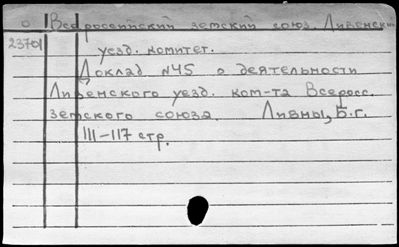 О Всероссийский земский союз. Ливенский
23701 уезд. комитет.
Доклад №45 о деятельности
Ливенского уезд. ком-та Всеросс.
земского союза. Ливны, Б.г.
111-117 стр.